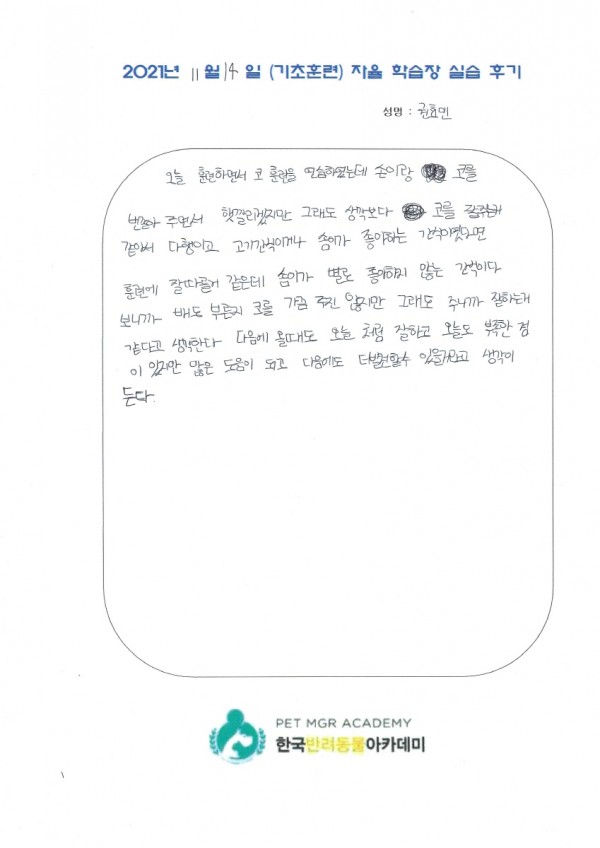 2021년 11월 14일 (기초훈련) 자율 학습장 실습 후기
성명 : 권효민
오늘 훈련하면서 코 훈련을 연습하였는데 손이랑 코를
번갈아 주면서 헷깔리겠지만 그래도 생각보다 코를 잘
같아서 다행이고 고기간식이거나 솜이가 좋아하는 간식이였다면
훈련에 잘따를거 같은데 솜이가 별로 좋아하지 않는 간식이다
보니까 배도 부른지 코를 가끔 주진 않지만 그래도 주니까 잘하는거
같다고 생각한다 다음에 올때도 오늘 처럼 잘하고 오늘도 부족한 점
이 있지만 많은 도움이 되고 다음에도 더발전할수 있을거라고 생각이
든다.
PET MGR ACADEMY
한국반려동물아카데미